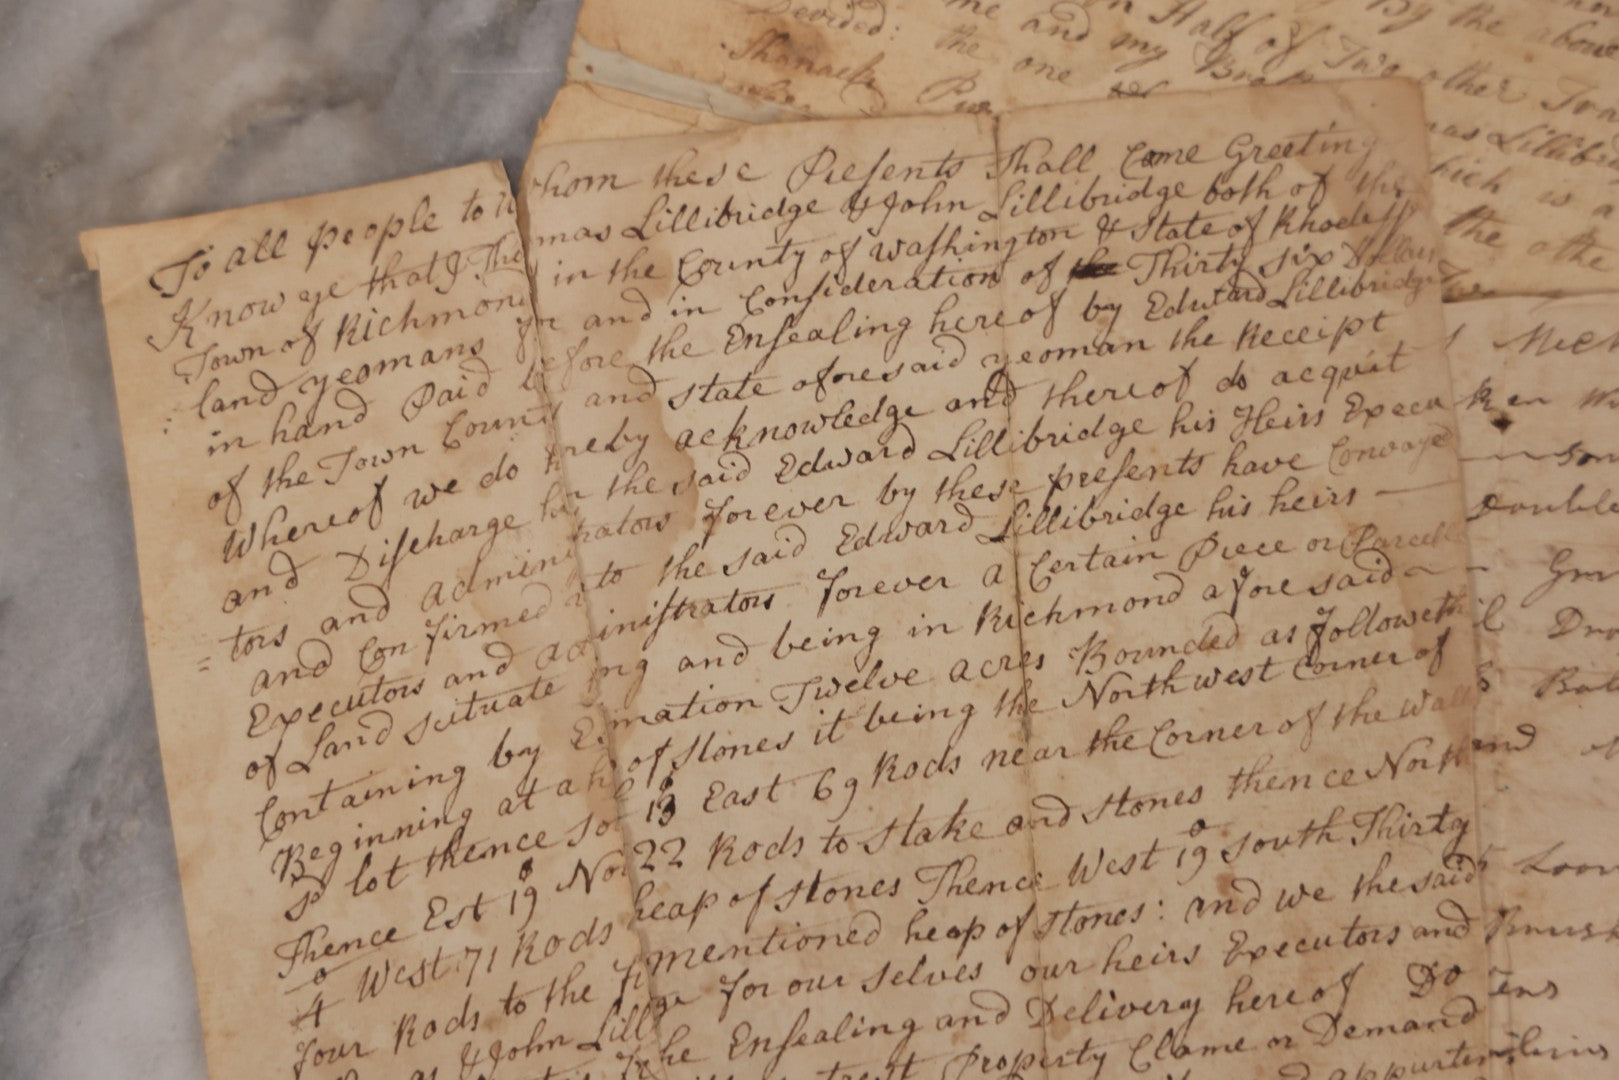 Devided: the one
me and my Brot
Half of Two other Tra
By the above
To all people to whom these Presents Shall Come Greeting
Know ye that I Thomas Lillibridge & John Lillibridge both of the
Town of Richmond in the County of Washington & State of Rhode Is
land yeomans for and in Consideration of Thirty six Dollars
in hand Paid before the Ensealing hereof by Edward Lillibridge
of the Town County and State aforesaid yeoman the Receipt
Whereof we do hereby acknowledge and thereof do acquit
and Discharge him the said Edward Lillibridge his Heirs Execu
tors and administrators forever by these presents have Convayed
and Confirmed to the said Edward Lillibridge his heirs
Executors and administrators forever a Certain Piece or Parcel
of Land scituate ing and being in Richmond afore said
Containing by Esmation Twelve acres Bounded as followeth
Beginning at a h of stones it being the Northwest Corner of
sd lot thence So 13 East 69 Rods near the Corner of the Wall
Thence Est 19 Nor 22 Rods to stake and stones thence North
4 West 71 Rods heap of stones Thence West 19 South Thirty
four Rods to the fi mentioned heap of stones: and we the said
& John Lillge for our selves our heirs Executors and
the Ensealing and Delivery here of Do
Property Clame or Demand
as Lillibri
hich is a
the othe